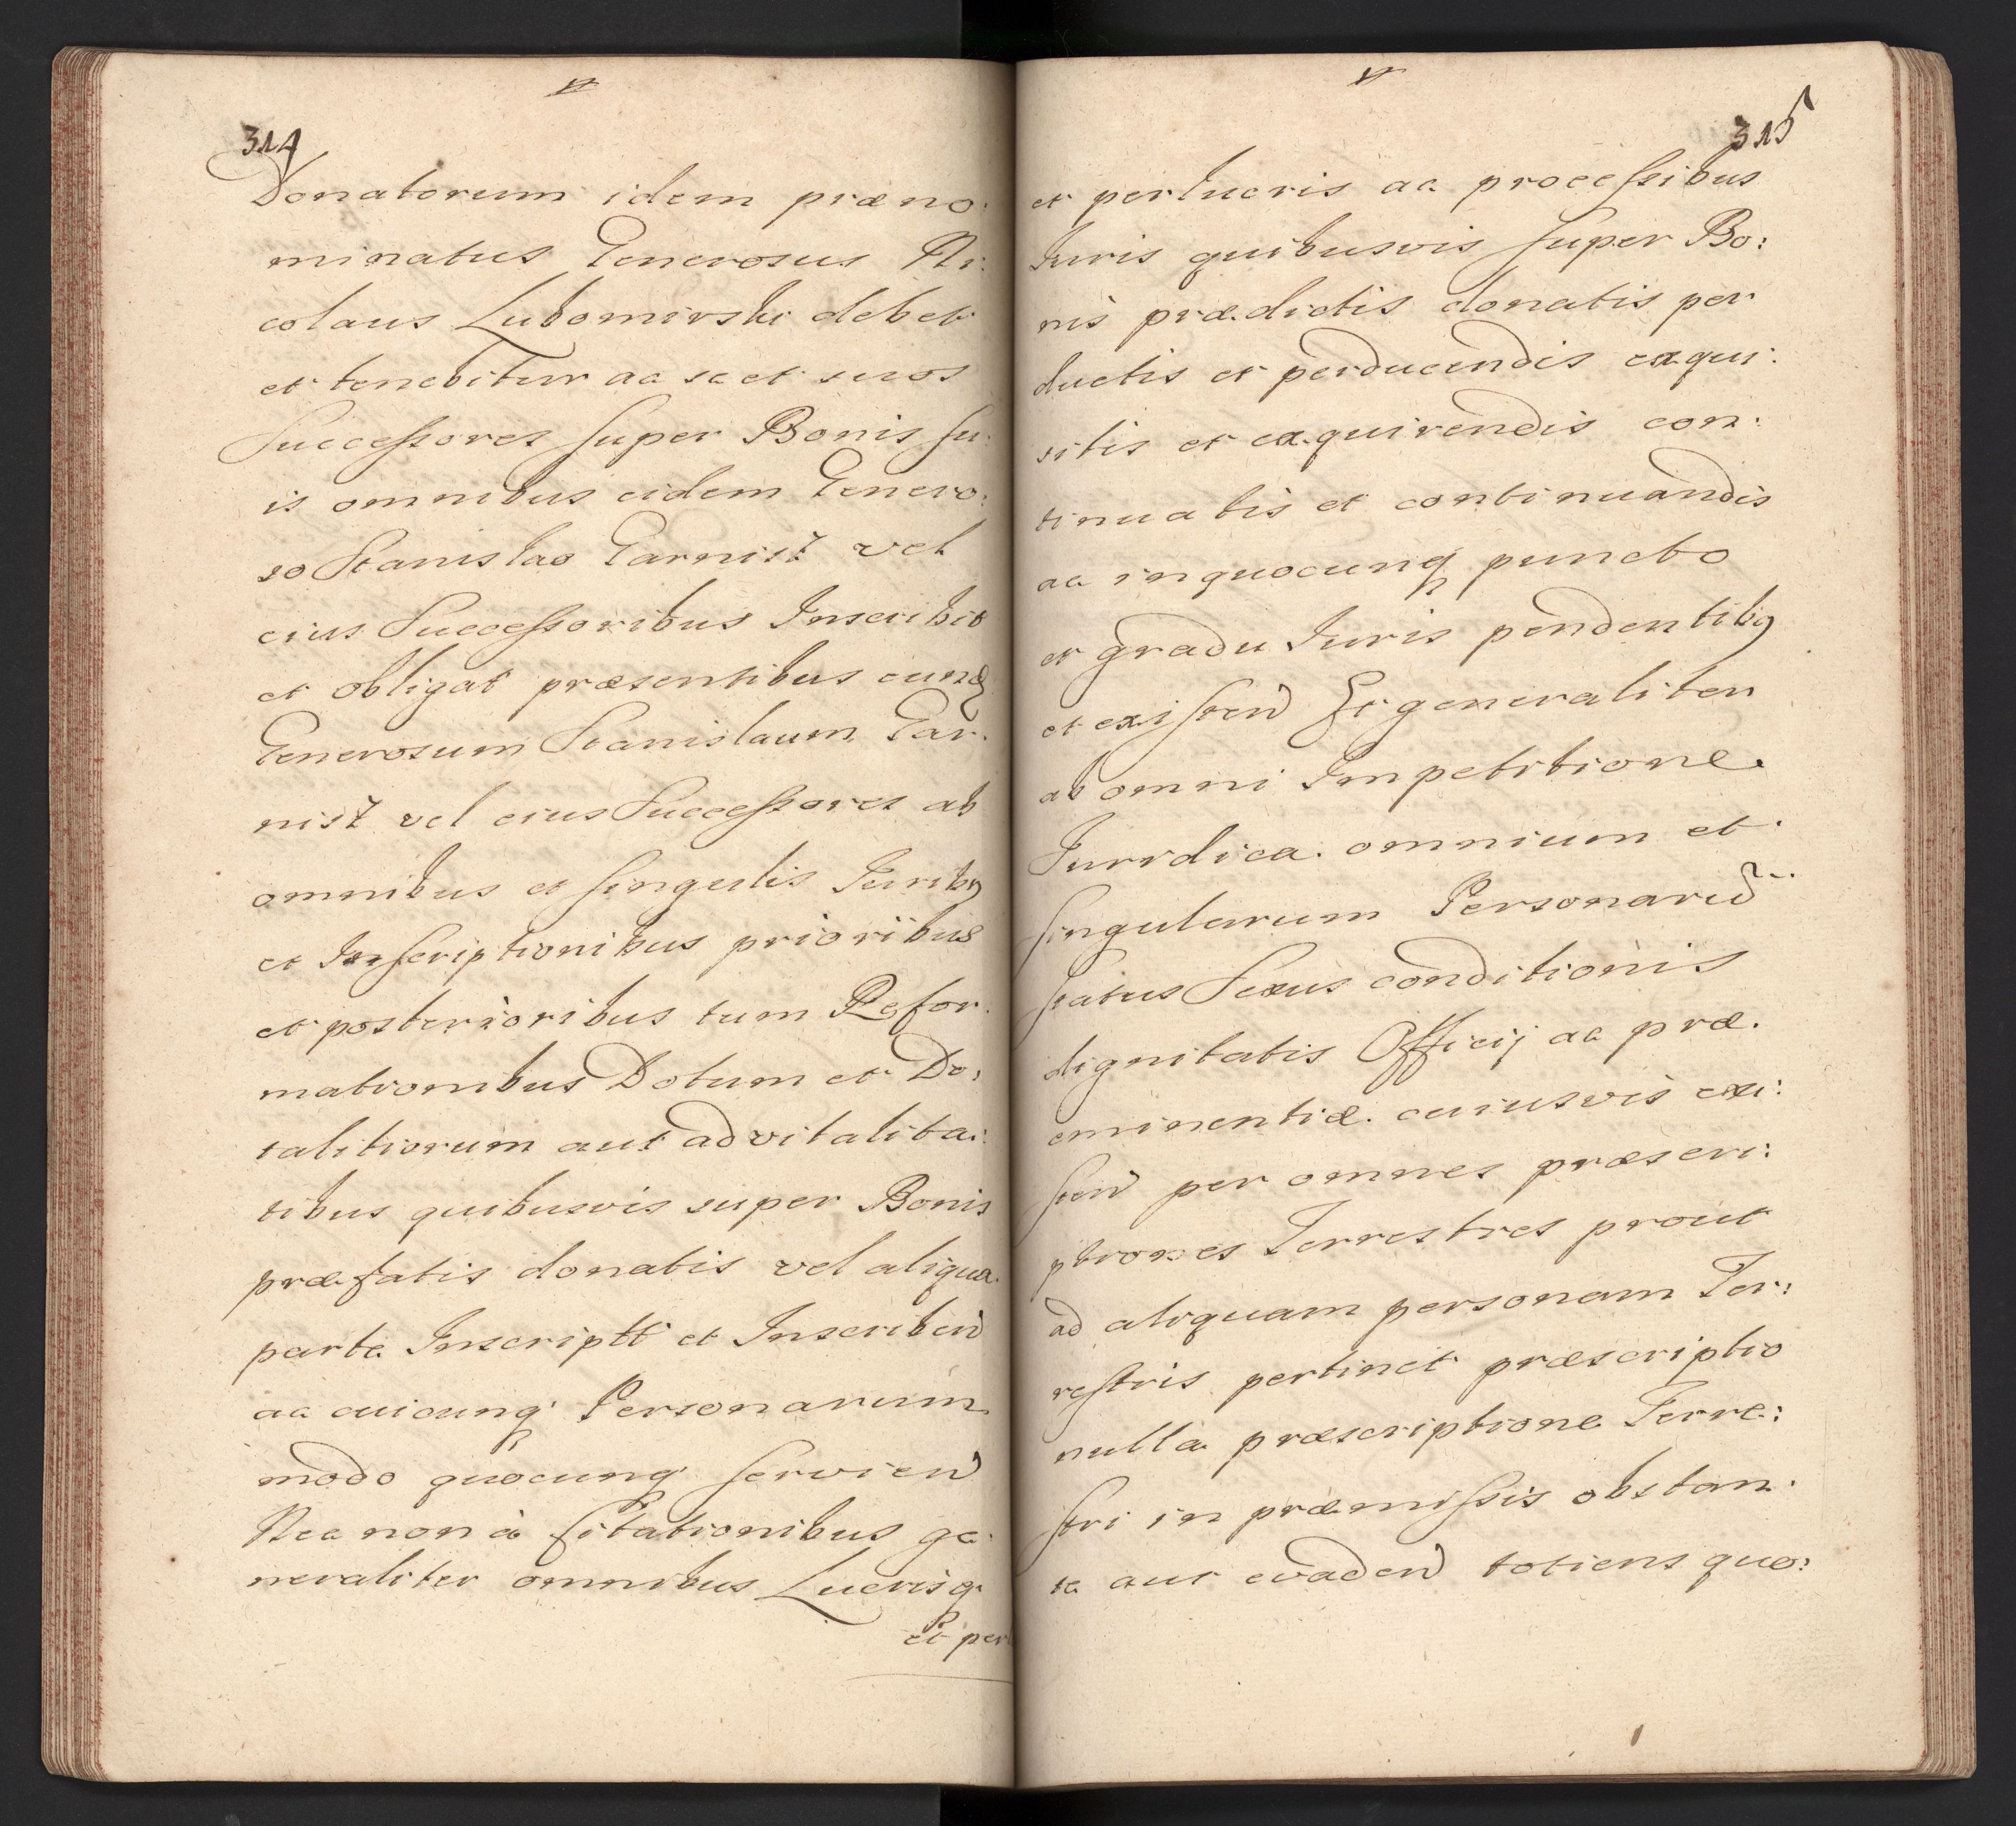 314
Donatorum idem præno:
minatus Generosus Ni:
colaus Lubomirski debet
et tenebitur ac se et suos
Successores super Bonis su:
is omnibus eidem Genero:
so Stanislao Garnisz vel
eius Successoribus Inscribit
et obligat præsentibus eundē
Generosum Stanislaum Gar:
nisz vel eius Successores ab
omnibus et singulis Juribꝫ
et Inscriptionibus prioribus
et posterioribus tum Refor:
mationibus Dotum et Do:
talitiorum aut advitalita:
tibus quibusvis super Bonis
præfatis donatis vel aliqua
parte Inscriptt et Inscriben̄
ac cuicunq̢ Personarum
modo quocunq̢ servien̄
Nec non à Citationibus ge:
neraliter omnibus Lucrisq̢
et per
315
et perlucris ac processibus
Juris quibusvis super Bo:
nis prædictis donatis per
ductis et perducendis exqui:
sitis et exquirendis con:
tinuatis et continuandis
ac inquocunq̢ puncto
et gradu Juris pendentibꝫ
et existen̄ Et generaliter
ab omni Impetitione
Juridica omnium et
singularum Personarū
status Sexus conditionis
dignitatis Officij ac præ:
eminentiæ cuiusvis exi:
sten̄ per omnes præscri:
ptiones Terrestres prout
ad aliquam personam Ter:
restris pertinet præscriptio
nulla præscriptione Terre:
stri in præmissis obstan:
te aut evaden̄ totiens quo: